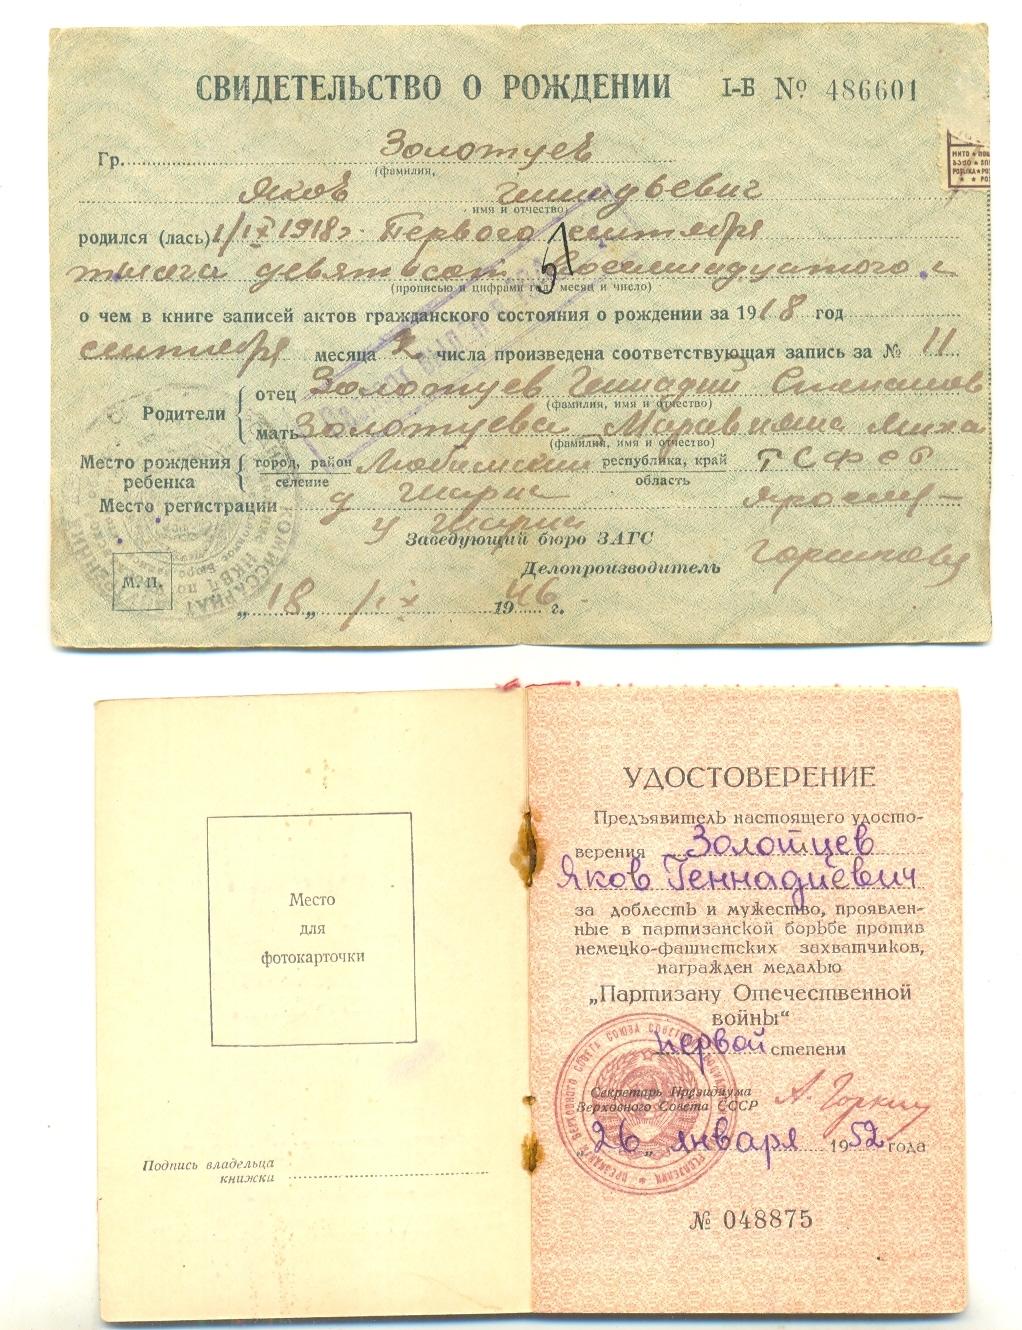 СВИДЕТЕЛЬСТВО О РОЖДЕНИИ I-Б № 486601
Гр. Золотцев
(фамилия,
Яков Геннадьевич
имя и отчество)
родился (лась) 1/IX 1918 г. Первого сентября
тысяча девятьсот восемнадцатого г
(прописью и цифрами год, месяц и число)
о чем в книге записей актов гражданского состояния о рождении за 1918 год
сентября месяца 2 числа произведена соответствующая запись за № 11
Родители
отец Золотцев Геннадий
(фамилия, имя и отчество)
мать Золотцева
(фамилия, имя и отчество)
Место рождения ребенка
город, район Любимский республика, край
селение область
Место регистрации
Заведующий бюро ЗАГС
Делопроизводитель
М. П.
„18 „ /IX 1946 г.
УДОСТОВЕРЕНИЕ
Предъявитель настоящего удосто-
верения Золотцев
Яков Геннадиевич
за доблесть и мужество, проявлен-
ные в партизанской борьбе против
немецко-фашистских захватчиков,
награжден медалью
„Партизану Отечественной
войны“
первой степени
Секретарь Президиума
Верховного Совета СССР А. Горкин
„26„ января 1952 года
№ 048875
Место
для
фотокарточки
Подпись владельца
книжки